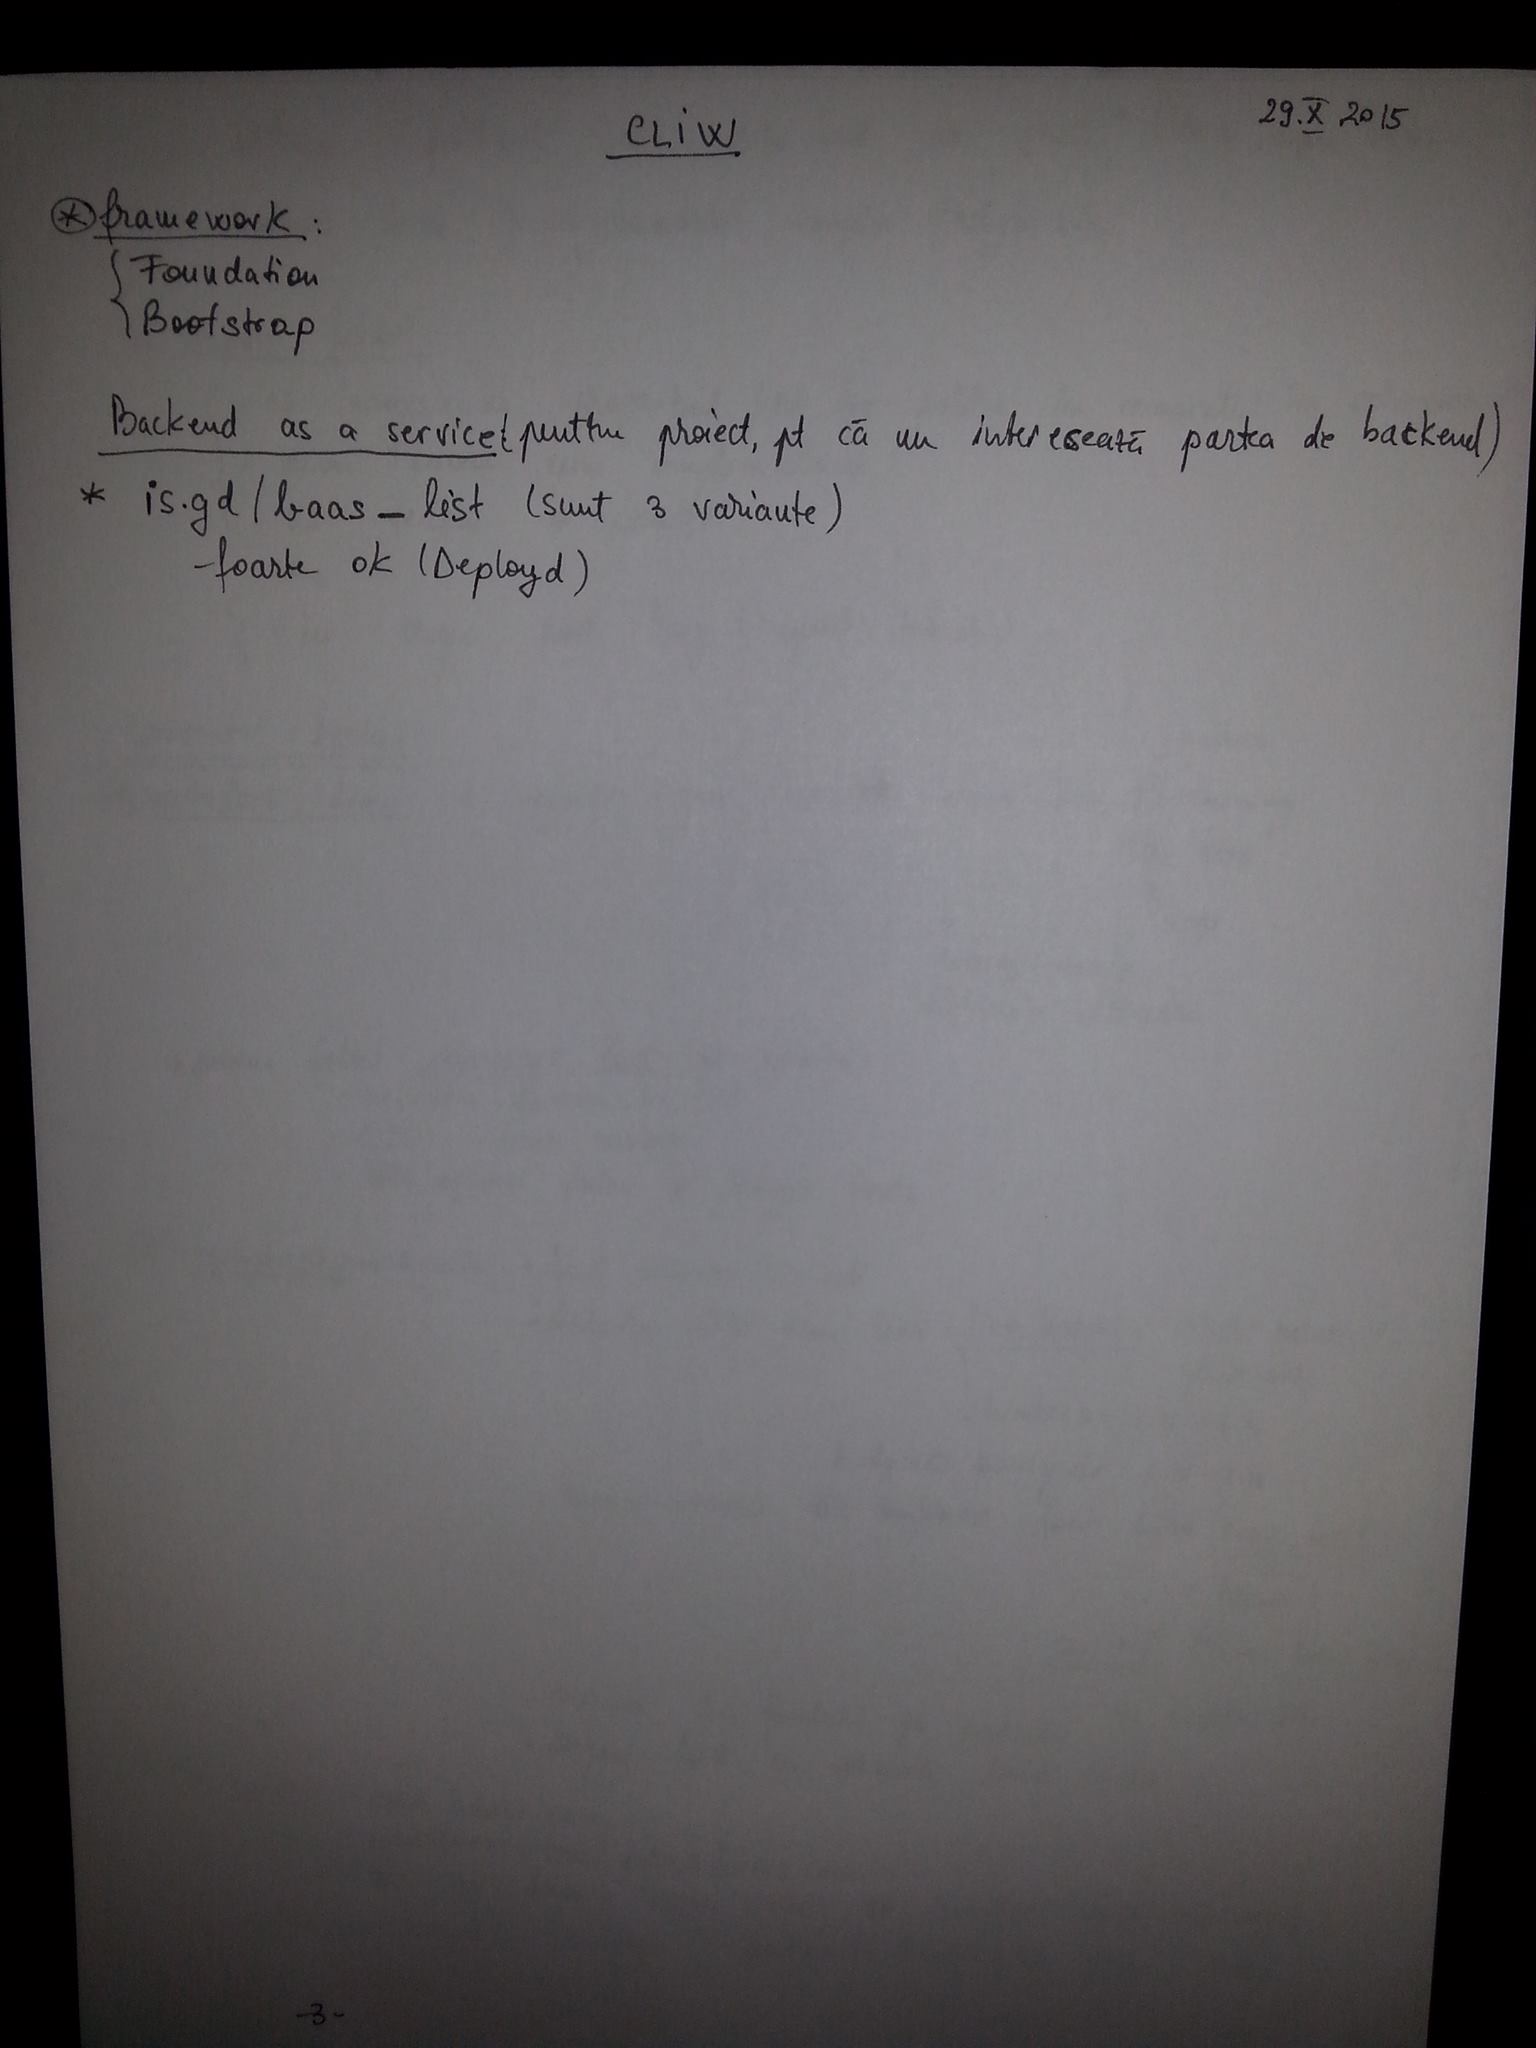 CLiW
29.X 2015
* framework:
Foundation
Bootstrap
Backend as a service (pentru proiect, pt că nu interesează partea de backend)
* is.gd/baas_list (sunt 3 variante)
- foarte ok (Deployd)
-3-